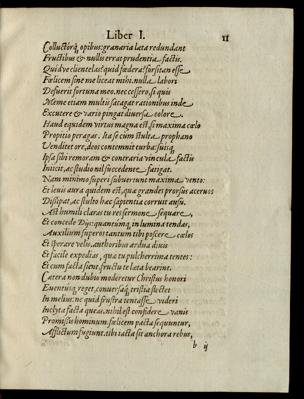 Liber I. 11
opibus: granaria lata redundant
Fructibus & nullis errat prudentia factis.
Quidve clientelas? quid fœdera? forsitan esse
Fœlicem sine me liceat mihi. nulla labori
Defuerit fortuna meo. nec cessero, si quis
Meme etiam multis satagat rationibus inde
Excutere & vario pingat diversa colore.
Haud equidem virtus magna est, si maxima cælo
Propitio peragas. Ita se cùm stulta prophano
Venditet ore, deos contemnit turba: suisq;
Ipsa sibi remoram & contraria vincula factis
Iniicit, ac studio nil succedente fatigat.
Nam minimo superi subvertunt maxima vento:
Et levis aura quidem est, quæ grandes prorsus acervos
Dissipat, ac stulto hæc sapientia corruit ausu.
Ast humili claras tu rei sermone sequare,
Et concede Diis: quantumq; in lumina tendas,
Auxilium superos tantum tibi poscere cælos
Et sperare velis, authoribus ardua divis
Et facile expedias, quæ tu pulcherrima tentes:
Et cum facta sient, fructu te lata bearint.
Cætera non dubio moderetur Christus honori
Eventusq; reget, conversaq; tristia flectet
In melius: ne quid frustra tentasse videri
Inclyta facta queas. nihil est confidere vanis
Promissis hominum. fœlicem pacta sequuntur,
Afflictum fugiunt. tibi tacta sit anchora rebus,
b ij